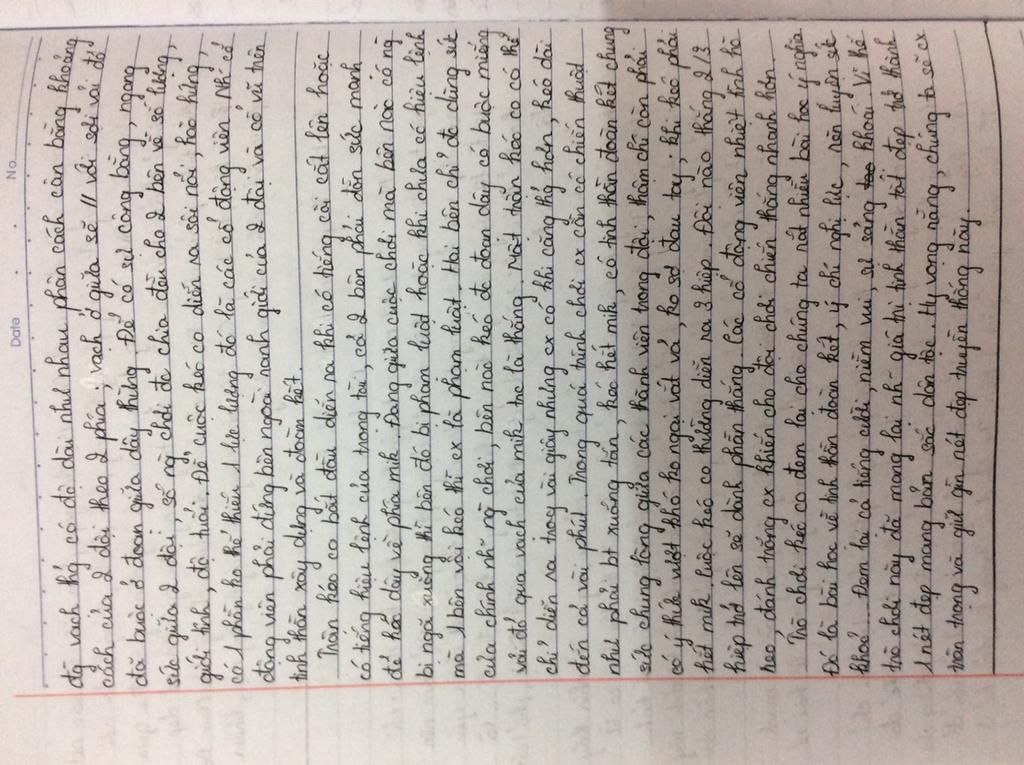 No.
Date
đó vạch thứ có độ dài như nhau phân cách cân bằng khoảng
cách của 2 đội theo 2 phía, vạch ở giữa sẽ // với sợi vải đỏ
đã buộc ở đoạn giữa dây thừng. Để có sự công bằng, ngang
sức giữa 2 đội, số ng chơi đc chia đều cho 2 bên về số lượng,
giới tính, độ tuổi. Để cuộc kéo co diễn ra sôi nổi, hào hứng,
có 1 phần ko thể thiếu 1 lực lượng đó là các cổ động viên. Nh cổ
động viên phải đứng bên ngoài ranh giới của 2 đội và cổ vũ trên
tinh thần xây dựng và đoàn kết.
Trận kéo co bắt đầu diễn ra khi có tiếng còi cất lên hoặc
có tiếng hiệu lệnh của trọng tài, cả 2 bên phải dồn sức mạnh
để kéo dây về phía mik. Đang giữa cuộc chơi mà bên nào có ng
bị ngã xuống thì bên đó bị phạm luật hoặc khi chưa có hiệu lệnh
mà 1 bên vội kéo thì cx là phạm luật. Hai bên chỉ đc dùng sức
của chính nh~ ng chơi, bên nào kéo đc đoạn dây có buộc miếng
vải đỏ qua vạch của mik trc là thắng. Một trận kéo co có thể
chỉ diễn ra trog vài giây nhưng cx có khi căng thg hơn, kéo dài
đến cả vài phút. Trong quá trình chơi cx cần có chiến thuật
như phải bt xuống tấn, kéo hết mik, có tinh thần đoàn kết chung
sức chung lòng giữa các thành viên trong đội, thậm chí còn phải
có ý thức vượt khó ko ngại vất vả, ko sợ đau tay. Khi kéo phải
hết mik. Cuộc kéo co thường diễn ra 3 hiệp. Đội nào thắng 2/3
hiệp trở lên sẽ dành phần thắng. Các cổ động viên nhiệt tình hò
heo, đánh trống cx khiến cho đội chơi chiến thắng nhanh hơn.
Trò chơi kéo co đem lại cho chúng ta rất nhiều bài học ý nghĩa.
Đó là bài học về tinh thần đoàn kết, ý chí nghị lực, rèn luyện sức
khoẻ... Đem lại cả tiếng cười, niềm vui, sự sảng khoái. Vì thế
trò chơi này đã mang lại nh~ giá trị tinh thần tốt đẹp trở thành
1 nét đẹp mang bản sắc dân tộc. Hy vọng rằng, chúng ta sẽ cx
trân trọng và giữ gìn nét đẹp truyền thống này.